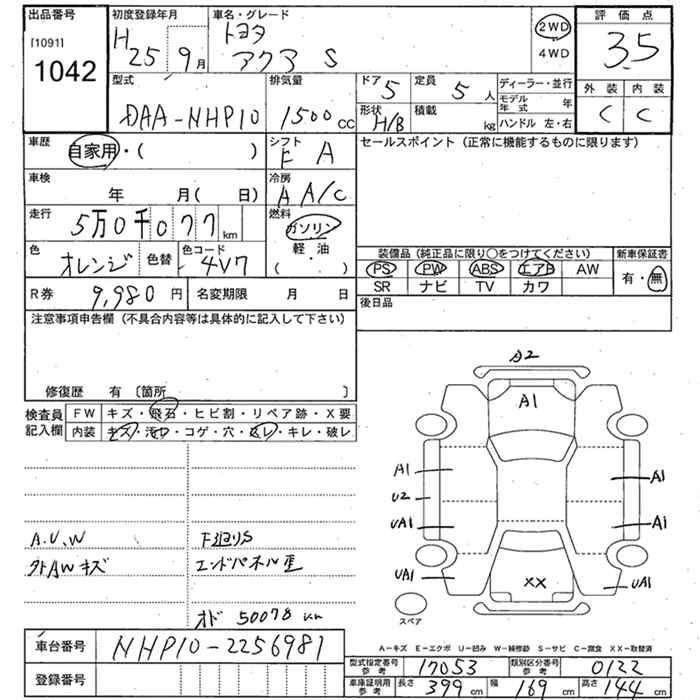 出品番号 初度登録年月 車名・グレード 評価点
[1091] H 25 9月 トヨタ 2WD 3.5
1042 アクア S 4WD
型式 排気量 ドア 5 定員 5人 ディーラー・並行 外装 内装
DAA-NHP10 1500cc 形状 H/B 積載 kg モデル年式 年 C C
ハンドル 左・右
車歴 自家用・( ) シフト F A セールスポイント(正常に機能するものに限ります)
車検 年 月(日) 冷房 A A/C
走行 5万0千077km 燃料 ガソリン
軽・油
( )
色 オレンジ 色替 色コード 4V7
装備品(純正品に限り○をつけてください) 新車保証書
PS PW ABS エアB AW 有・無
SR ナビ TV カワ
R券 9,980円 名変期限 月 日 後日品
注意事項申告欄(不具合内容等は具体的に記入して下さい)
修復歴 有〔箇所 〕
検査員記入欄 FW キズ・飛石・ヒビ割・リペア跡・X要
内装 キズ・汚レ・コゲ・穴・スレ・キレ・破レ
A2
A1
A1 A1
U2
UA1 A1
UA1 XX UA1
スペア
A.U.W F廻りS
外AWキズ エンドパネル歪
オド 50078 km
A-キズ E-エクボ U-凹み W-補修跡 S-サビ C-腐食 XX-取替済
車台番号 NHP10-2256981
登録番号
型式指定番号 参考 17053 類別区分番号 参考 0122
車庫証明用 参考 長さ 399cm 幅 169cm 高さ 144cm